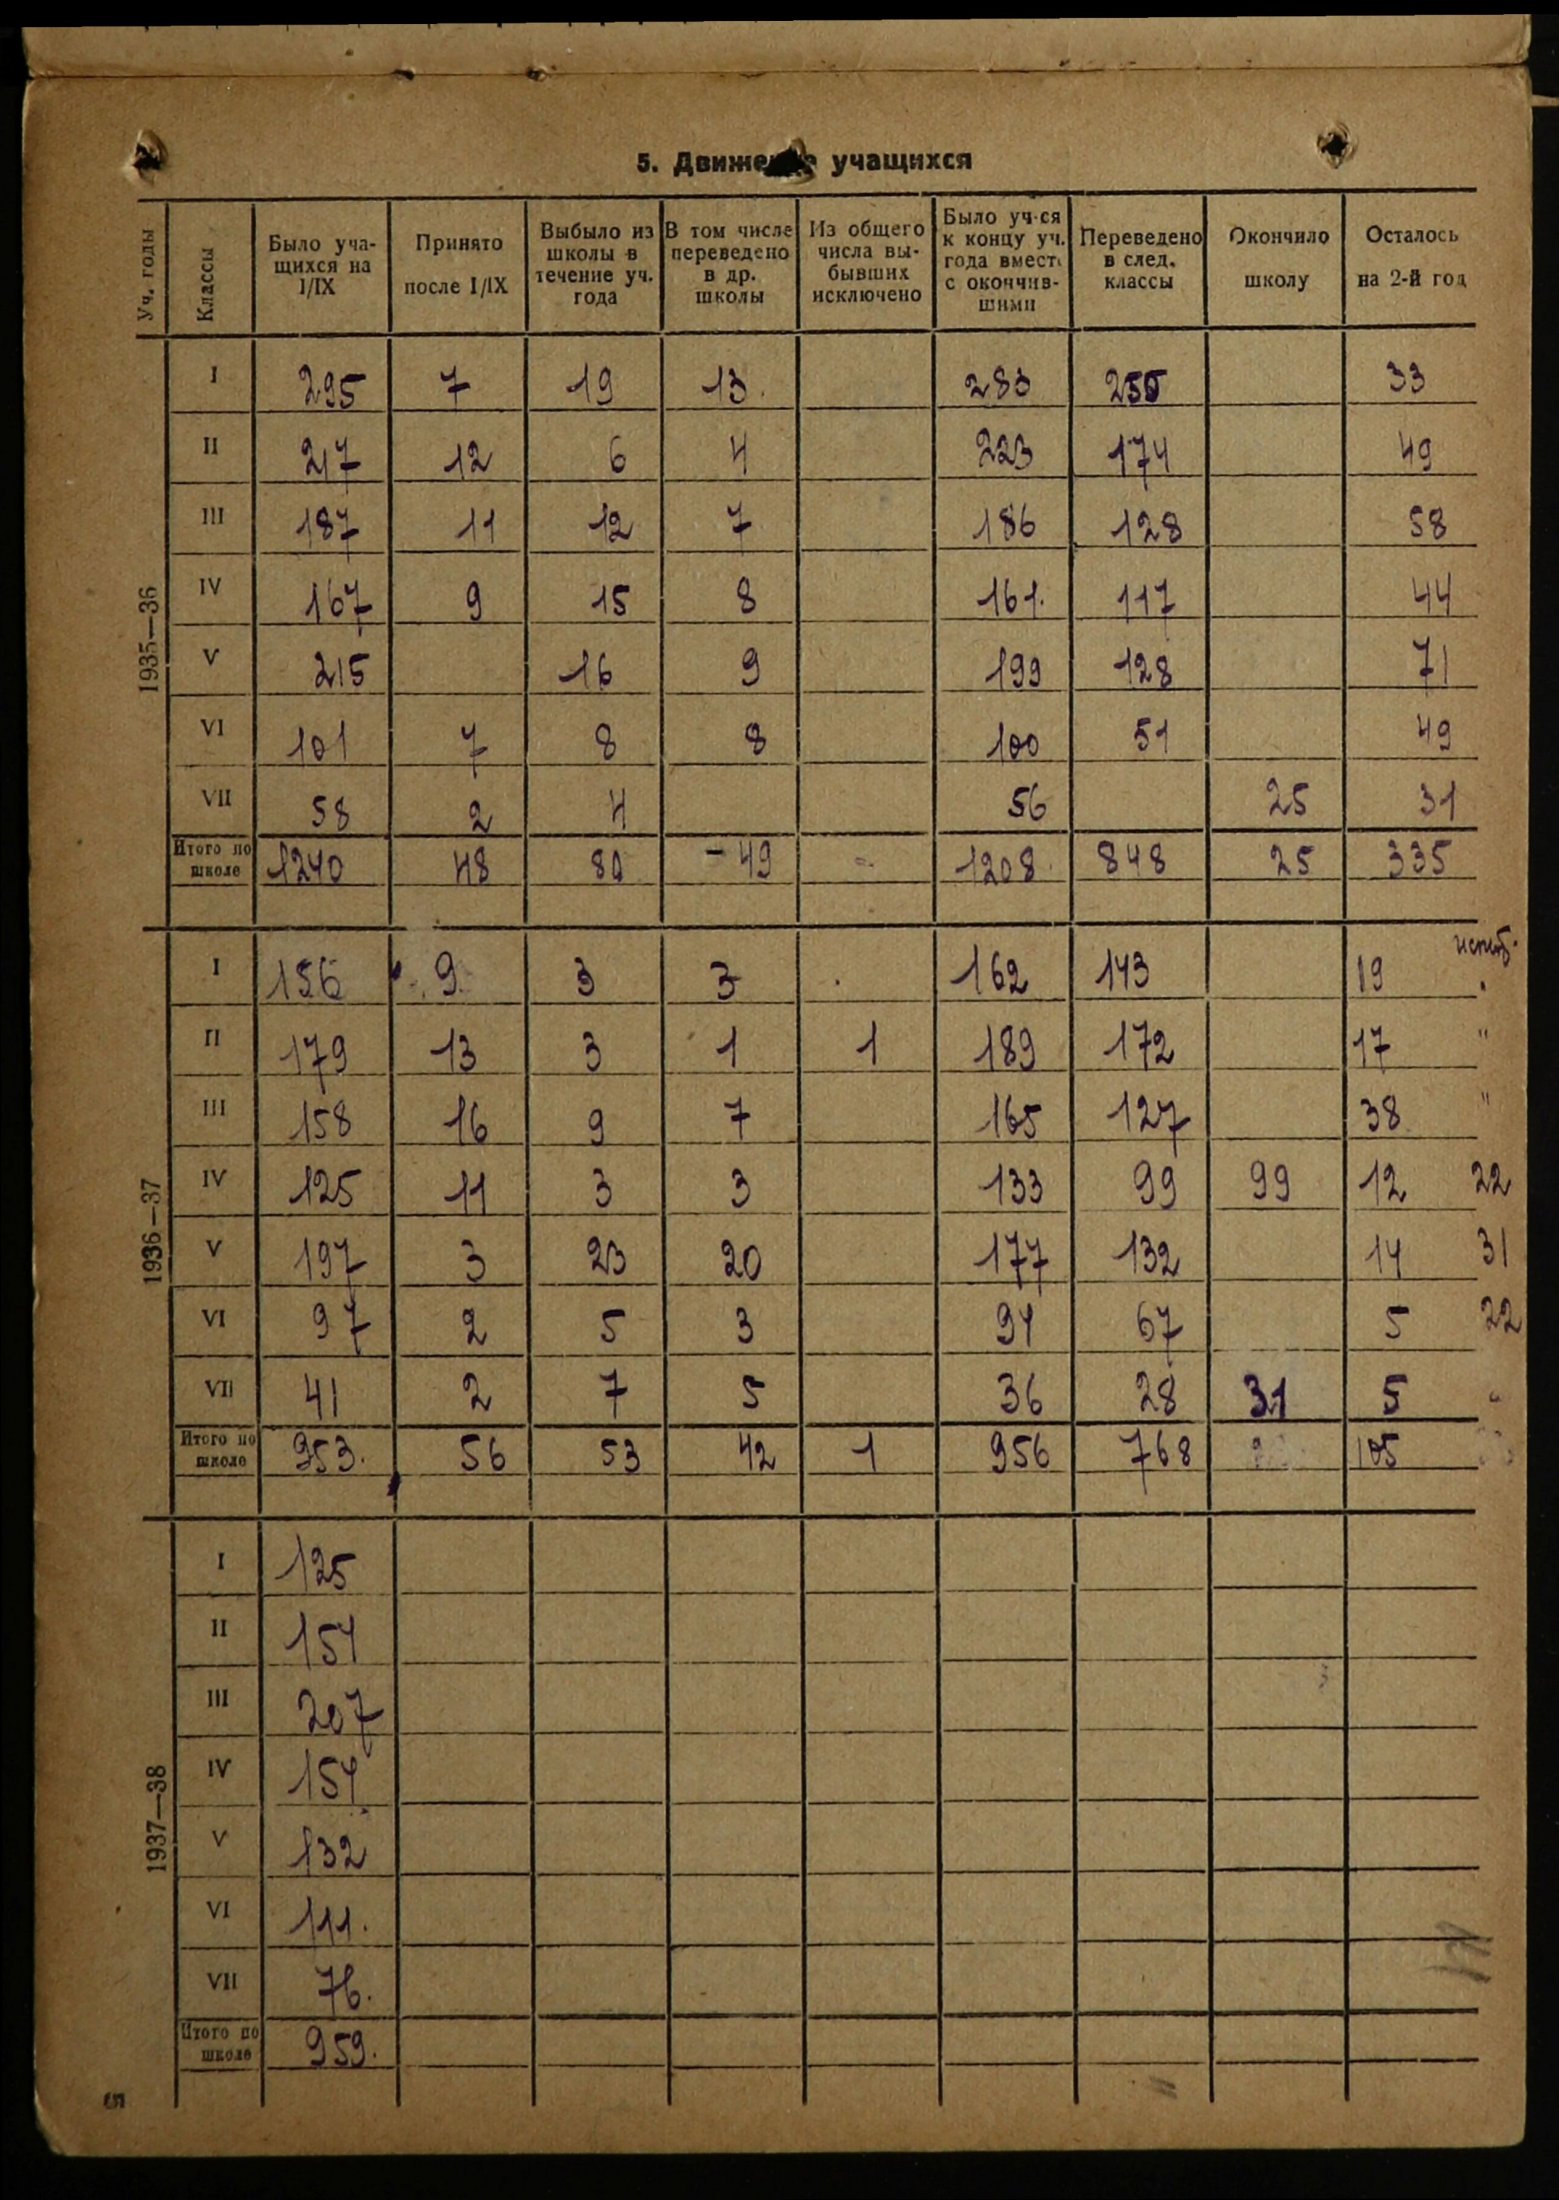 5. Движение учащихся
Уч. годы Классы Было уча- Принято Выбыло из В том числе Из общего Было уч-ся Переведено Окончило Осталось
щихся на после I/IX школы в переведено числа вы- к концу уч. в след. школу на 2-й год
I/IX течение уч. в др. бывших года вместе классы
года школы исключено с окончив-
шими
1935—36
I 295 7 19 13. 283 250 33
II 217 12 6 4 223 174 49
III 187 11 12 7 186 128 58
IV 167 9 15 8 161. 117 44
V 215 16 9 199 128 71
VI 101 7 8 8 100 51 49
VII 58 2 4 56 25 31
Итого по школе 1240 48 80 - 49 - 1208 848 25 335
1936—37
I 156 9 3 3 162 143 19
II 179 13 3 1 1 189 172 17 "
III 158 16 9 7 165 127 38 "
IV 125 11 3 3 133 99 99 12 22
V 197 3 23 20 177 132 14 31
VI 97 2 5 3 94 67 5 22
VII 41 2 7 5 36 28 31 5
Итого по школе 953. 56 53 42 1 956 768 105
1937—38
I 125
II 154
III 207
IV 154
V 132
VI 111.
VII 76.
Итого по школе 959.
5